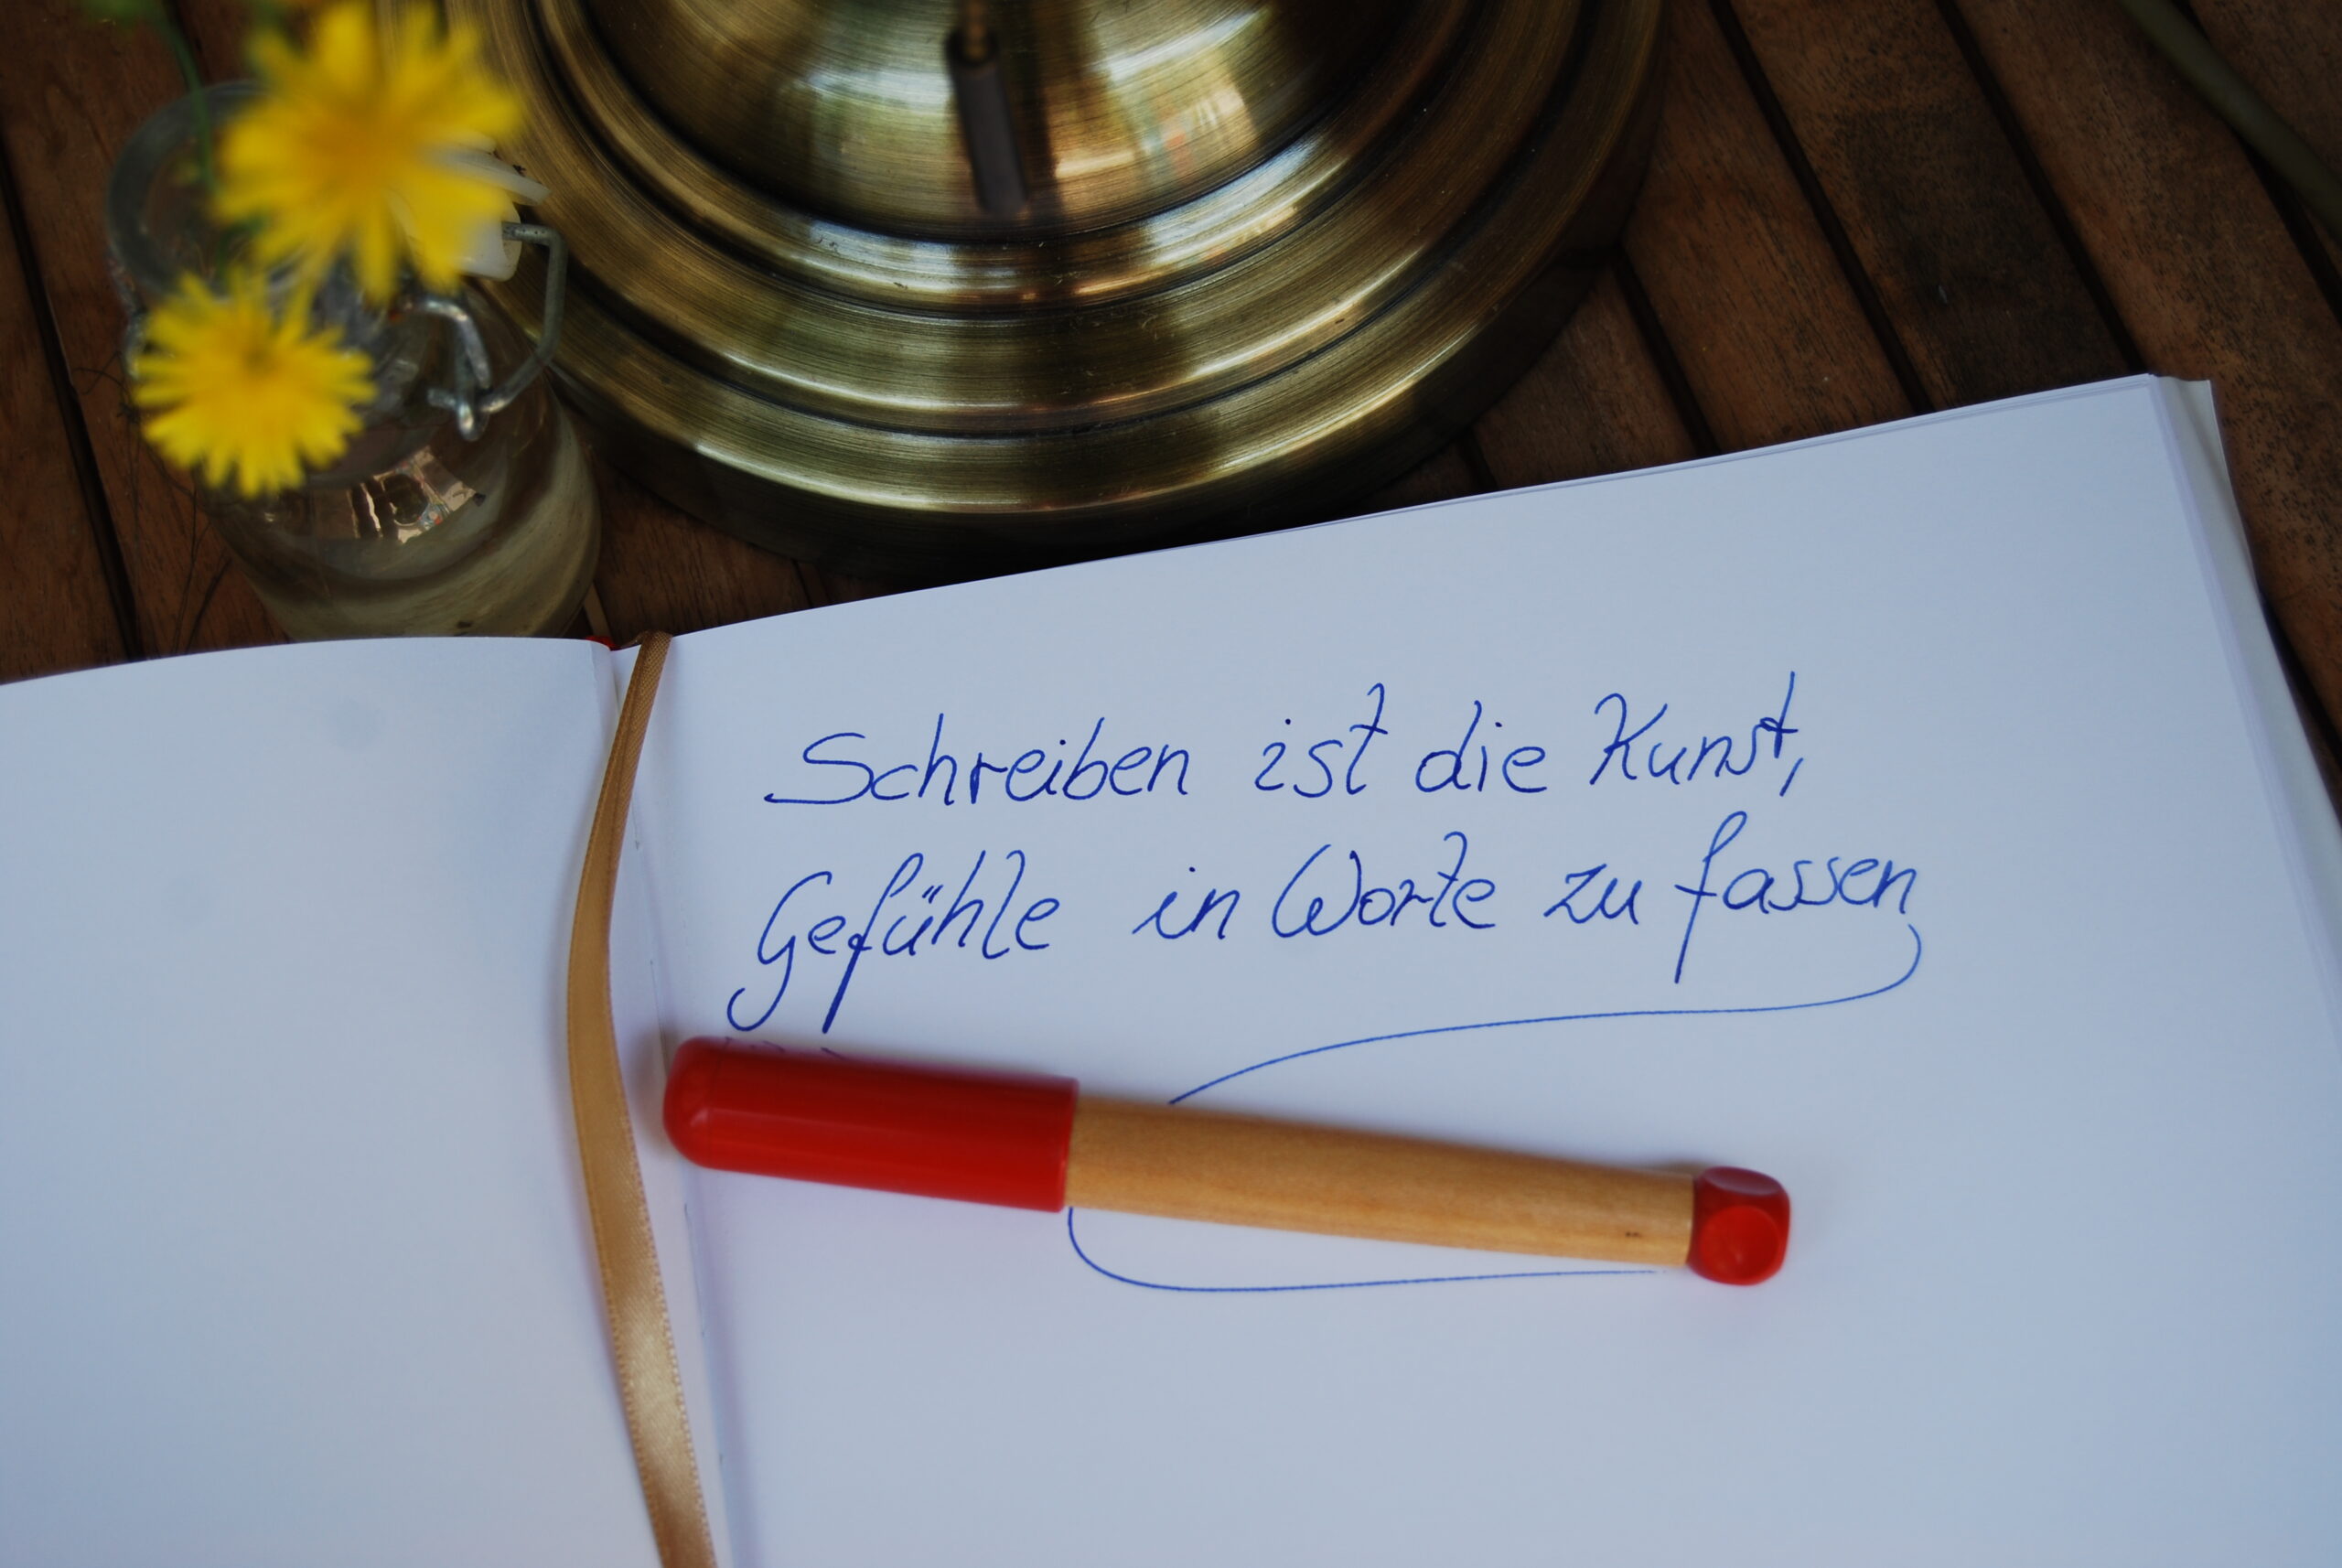 Schreiben ist die Kunst,
Gefühle in Worte zu fassen